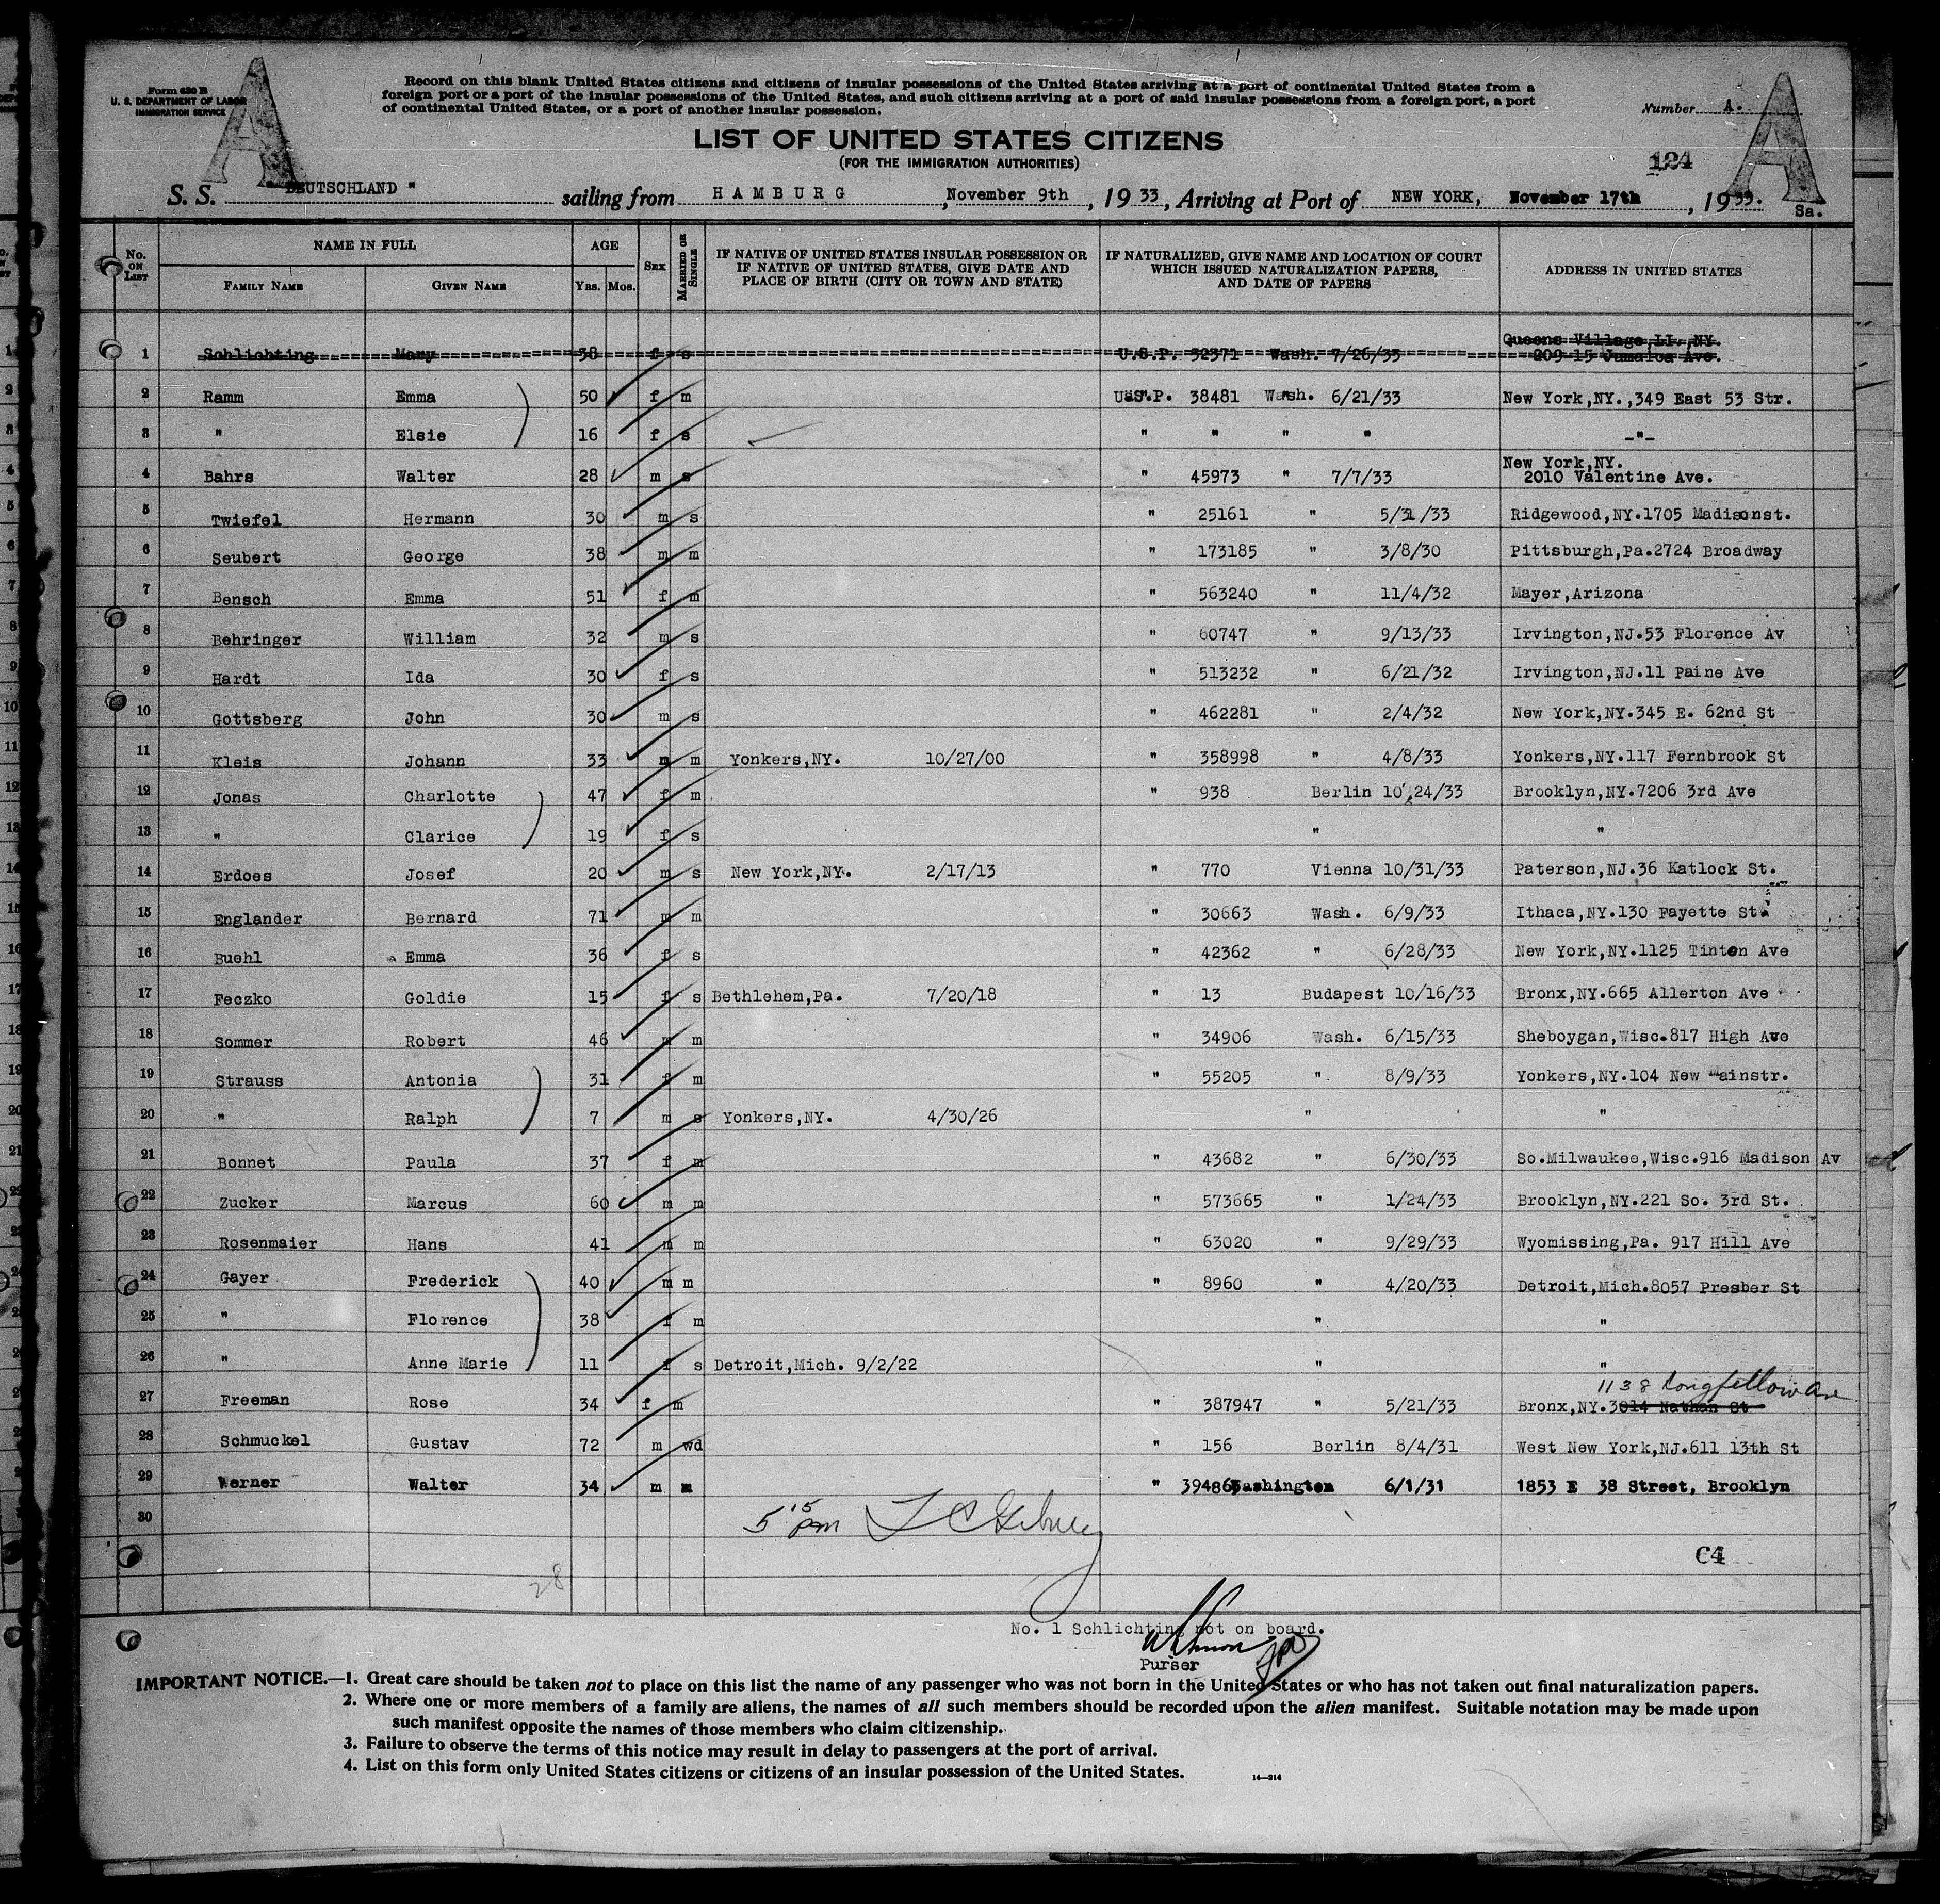 Form 630 B
U. S. DEPARTMENT OF LABOR
IMMIGRATION SERVICE
A
Record on this blank United States citizens and citizens of insular possessions of the United States arriving at a port of continental United States from a
foreign port or a port of the insular possessions of the United States, and such citizens arriving at a port of said insular possessions from a foreign port, a port
of continental United States, or a port of another insular possession.
Number A.
A
LIST OF UNITED STATES CITIZENS
(FOR THE IMMIGRATION AUTHORITIES)
124
S. S. "DEUTSCHLAND" sailing from HAMBURG, November 9th, 1933, Arriving at Port of NEW YORK, November 17th, 1933.
Sa.
No. ON LIST NAME IN FULL FAMILY NAME GIVEN NAME AGE YRS. MOS. SEX MARRIED OR SINGLE IF NATIVE OF UNITED STATES INSULAR POSSESSION OR IF NATIVE OF UNITED STATES, GIVE DATE AND PLACE OF BIRTH (CITY OR TOWN AND STATE) IF NATURALIZED, GIVE NAME AND LOCATION OF COURT WHICH ISSUED NATURALIZATION PAPERS, AND DATE OF PAPERS ADDRESS IN UNITED STATES
1 Schlichting Mary 38 f s U.S.P. 32371 Wash. 7/26/33 Queens Village,LI.,NY. 209-15 Jamaica Ave.
2 Ramm Emma 50 f m U.S.P. 38481 Wash. 6/21/33 New York,NY.,349 East 53 Str.
3 " Elsie 16 f s " " " " -"-
4 Bahrs Walter 28 m s " 45973 " 7/7/33 New York,NY. 2010 Valentine Ave.
5 Twiefel Hermann 30 m s " 25161 " 5/31/33 Ridgewood,NY.1705 Madisonst.
6 Seubert George 38 m m " 173185 " 3/8/30 Pittsburgh,Pa.2724 Broadway
7 Bensch Emma 51 f m " 563240 " 11/4/32 Mayer,Arizona
8 Behringer William 32 m s " 60747 " 9/13/33 Irvington,NJ.53 Florence Av
9 Hardt Ida 30 f s " 513232 " 6/21/32 Irvington,NJ.11 Paine Ave
10 Gottsberg John 30 m s " 462281 " 2/4/32 New York,NY.345 E. 62nd St
11 Kleis Johann 33 m m Yonkers,NY. 10/27/00 " 358998 " 4/8/33 Yonkers,NY.117 Fernbrook St
12 Jonas Charlotte 47 f m " 938 Berlin 10/24/33 Brooklyn,NY.7206 3rd Ave
13 " Clarice 19 f s " "
14 Erdoes Josef 20 m s New York,NY. 2/17/13 " 770 Vienna 10/31/33 Paterson,NJ.36 Katlock St.
15 Englander Bernard 71 m m " 30663 Wash. 6/9/33 Ithaca,NY.130 Fayette St.
16 Buehl Emma 36 f s " 42362 " 6/28/33 New York,NY.1125 Tinton Ave
17 Feczko Goldie 15 f s Bethlehem,Pa. 7/20/18 " 13 Budapest 10/16/33 Bronx,NY.665 Allerton Ave
18 Sommer Robert 46 m m " 34906 Wash. 6/15/33 Sheboygan,Wisc.817 High Ave
19 Strauss Antonia 31 f m " 55205 " 8/9/33 Yonkers,NY.104 New Mainstr.
20 " Ralph 7 m s Yonkers,NY. 4/30/26 " "
21 Bonnet Paula 37 f m " 43682 " 6/30/33 So.Milwaukee,Wisc.916 Madison Av
22 Zucker Marcus 60 m m " 573665 " 1/24/33 Brooklyn,NY.221 So. 3rd St.
23 Rosenmaier Hans 41 m m " 63020 " 9/29/33 Wyomissing,Pa. 917 Hill Ave
24 Gayer Frederick 40 m m " 8960 " 4/20/33 Detroit,Mich.8057 Presber St
25 " Florence 38 f m " "
26 " Anne Marie 11 f s Detroit,Mich. 9/2/22 " "
1138 Longfellow Ave
27 Freeman Rose 34 f m " 387947 " 5/21/33 Bronx,NY.3014 Nathan St
28 Schmuckel Gustav 72 m wd " 156 Berlin 8/4/31 West New York,NJ.611 13th St
29 Werner Walter 34 m m " 39486 Washington 6/1/31 1853 E 38 Street, Brooklyn
30
5 15 pm
C4
28
No. 1 Schlichting not on board.
Purser
IMPORTANT NOTICE.—1. Great care should be taken not to place on this list the name of any passenger who was not born in the United States or who has not taken out final naturalization papers.
2. Where one or more members of a family are aliens, the names of all such members should be recorded upon the alien manifest. Suitable notation may be made upon
such manifest opposite the names of those members who claim citizenship.
3. Failure to observe the terms of this notice may result in delay to passengers at the port of arrival.
4. List on this form only United States citizens or citizens of an insular possession of the United States.
14—314